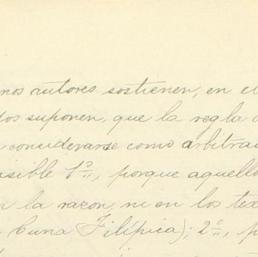 nos autores sostienen, en e
dos suponen, que la regla
considerarse como arbitra
isible 1º, porque aquello
la razon, ni en los tex
Curia Filípica); 2º, p